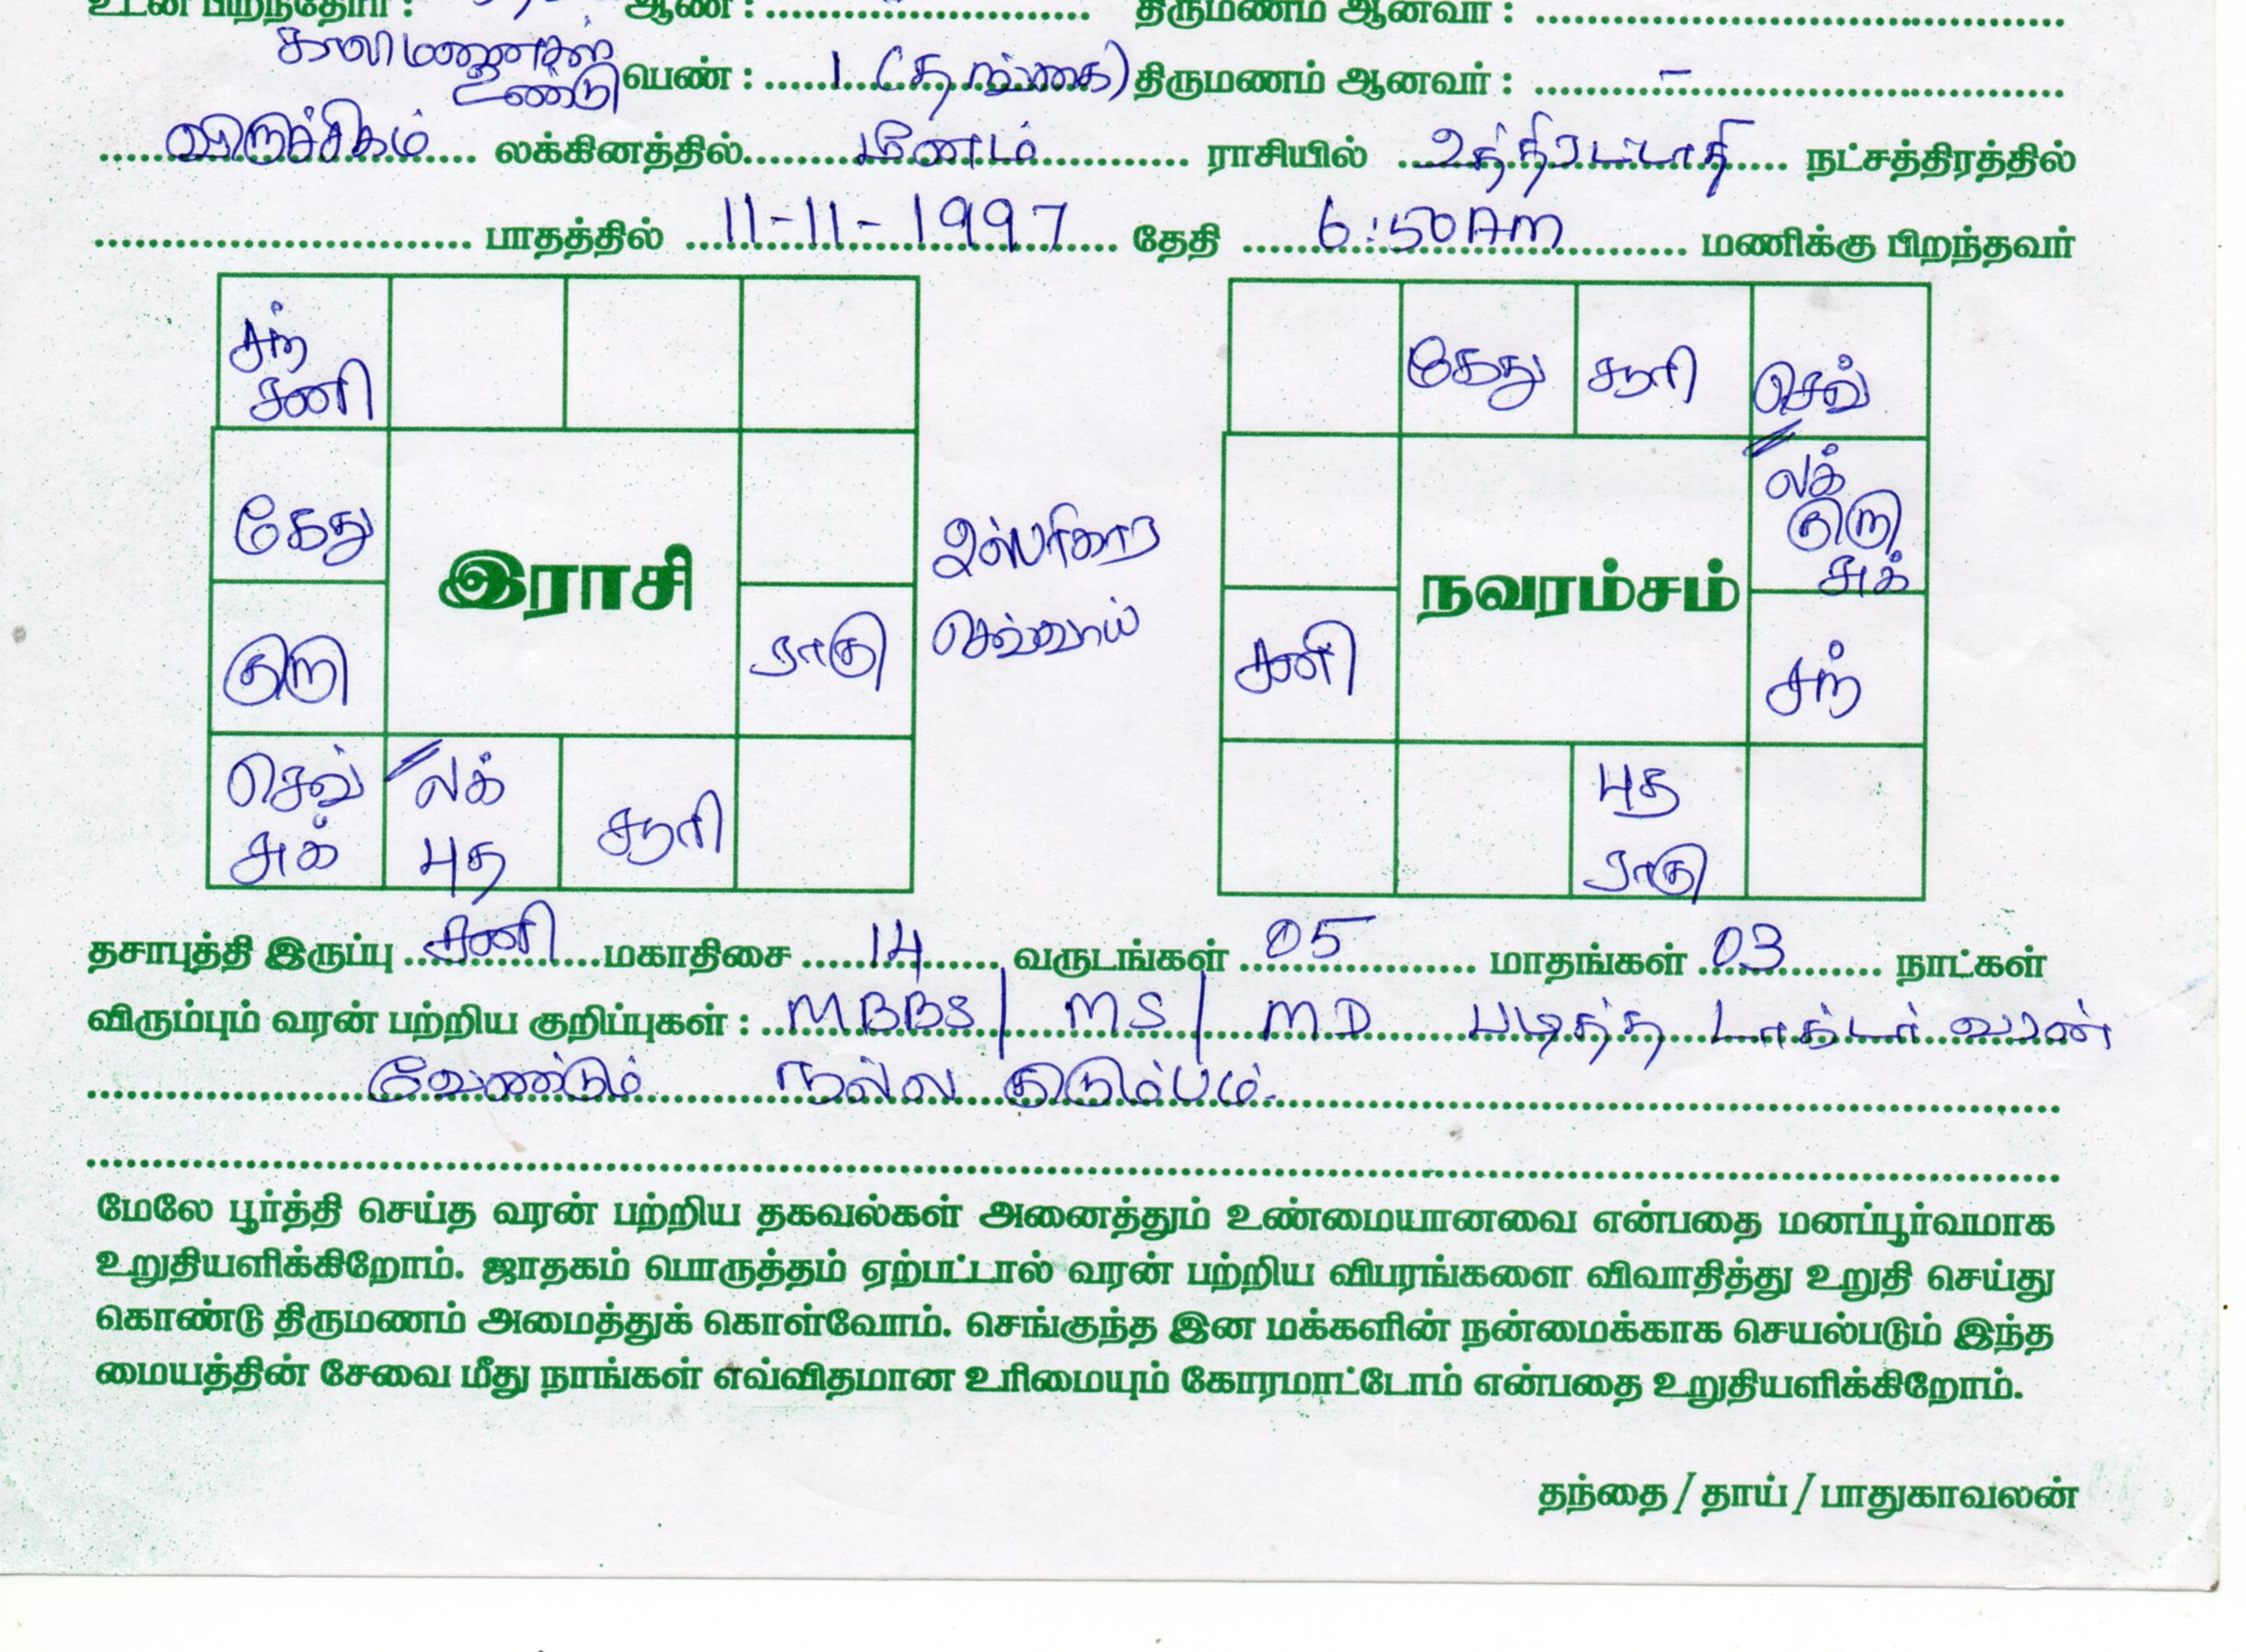 உடன் பிறந்தோர் : ஆண் : திருமணம் ஆனவர் :
காலி மனைகள்
உண்டு
பெண் : 1 (தங்கை) திருமணம் ஆனவர் : -
விருச்சிகம் லக்கினத்தில் மீனம் ராசியில் உத்திரட்டாதி நட்சத்திரத்தில்
பாதத்தில் 11-11-1997 தேதி 6:50 AM மணிக்கு பிறந்தவர்
சந்
சனி
கேது
குரு
இராசி
ராகு
செவ்
சுக்
லக்
புத
சூரி
செவ்வாய்
கேது சூரி செவ்
லக்
குரு
சுக்
நவரம்சம்
சனி
சந்
புத
ராகு
தசாபுத்தி இருப்பு சனி மகாதிசை 14 வருடங்கள் 05 மாதங்கள் 03 நாட்கள்
விரும்பும் வரன் பற்றிய குறிப்புகள் : MBBS / MS / MD படித்த டாக்டர் வரன்
வேண்டும் நல்ல குடும்பம்.
மேலே பூர்த்தி செய்த வரன் பற்றிய தகவல்கள் அனைத்தும் உண்மையானவை என்பதை மனப்பூர்வமாக
உறுதியளிக்கிறோம். ஜாதகம் பொருத்தம் ஏற்பட்டால் வரன் பற்றிய விபரங்களை விவாதித்து உறுதி செய்து
கொண்டு திருமணம் அமைத்துக் கொள்வோம். செங்குந்த இன மக்களின் நன்மைக்காக செயல்படும் இந்த
மையத்தின் சேவை மீது நாங்கள் எவ்விதமான உரிமையும் கோரமாட்டோம் என்பதை உறுதியளிக்கிறோம்.
தந்தை / தாய் / பாதுகாவலன்